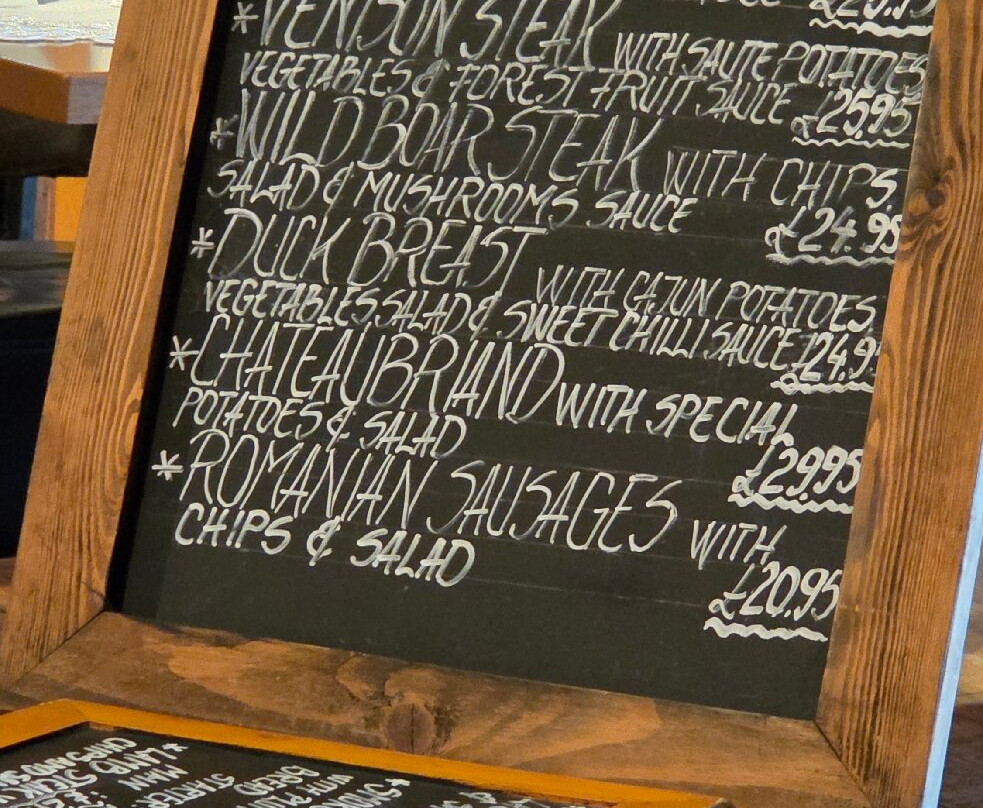 *VENISON STEAK WITH SAUTE POTATOES
VEGETABLES & FOREST FRUIT SAUCE £25.95
*WILD BOAR STEAK WITH CHIPS.
SALAD & MUSHROOMS SAUCE £24.95
*DUCK BREAST WITH CAJUN POTATOES
VEGETABLES SALAD & SWEET CHILLI SAUCE £24.9
*CHATEAUBRIAND WITH SPECIAL
POTATOES & SALAD £29.95
*ROMANIAN SAUSAGES WITH
CHIPS & SALAD £20.95
*LAMB
MAIN
STARTER